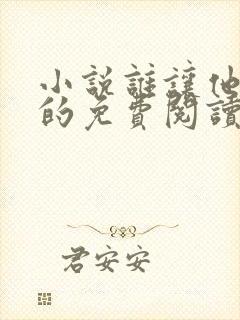 小說誰讓他
的免費閱讀
君安安